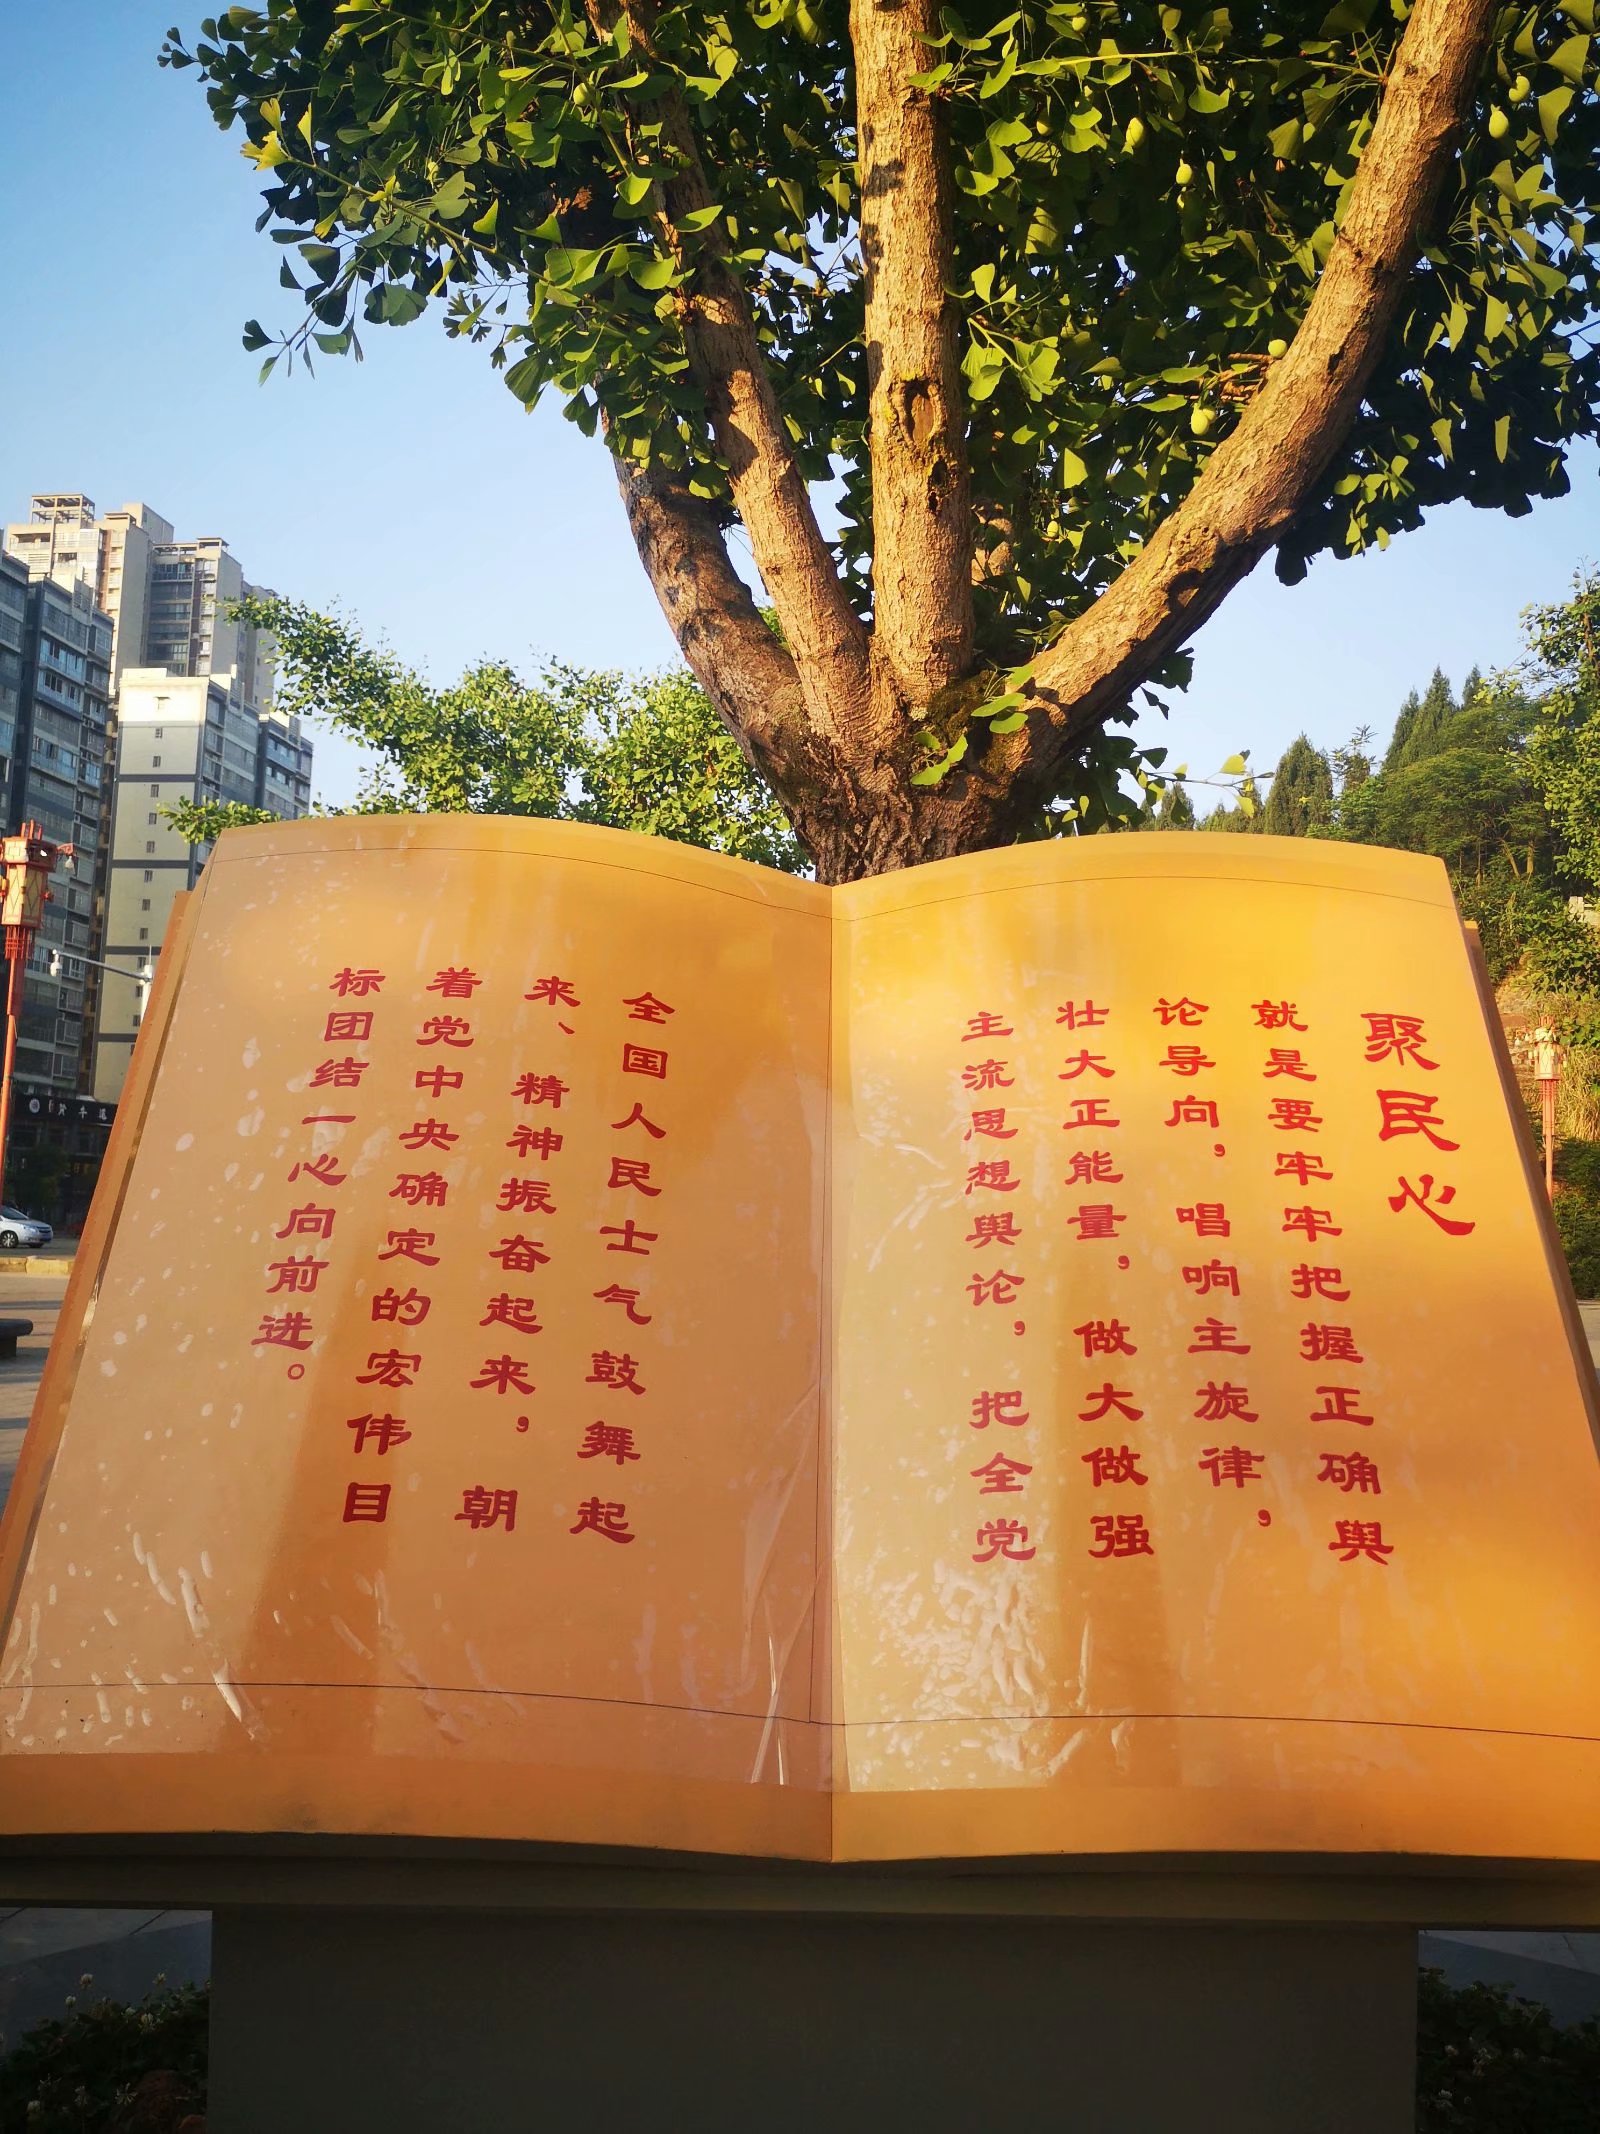 聚民心
就是要牢牢把握正确舆
论导向，唱响主旋律，
壮大正能量，做大做强
主流思想舆论，把全党
全国人民士气鼓舞起
来、精神振奋起来，朝
着党中央确定的宏伟目
标团结一心向前进。